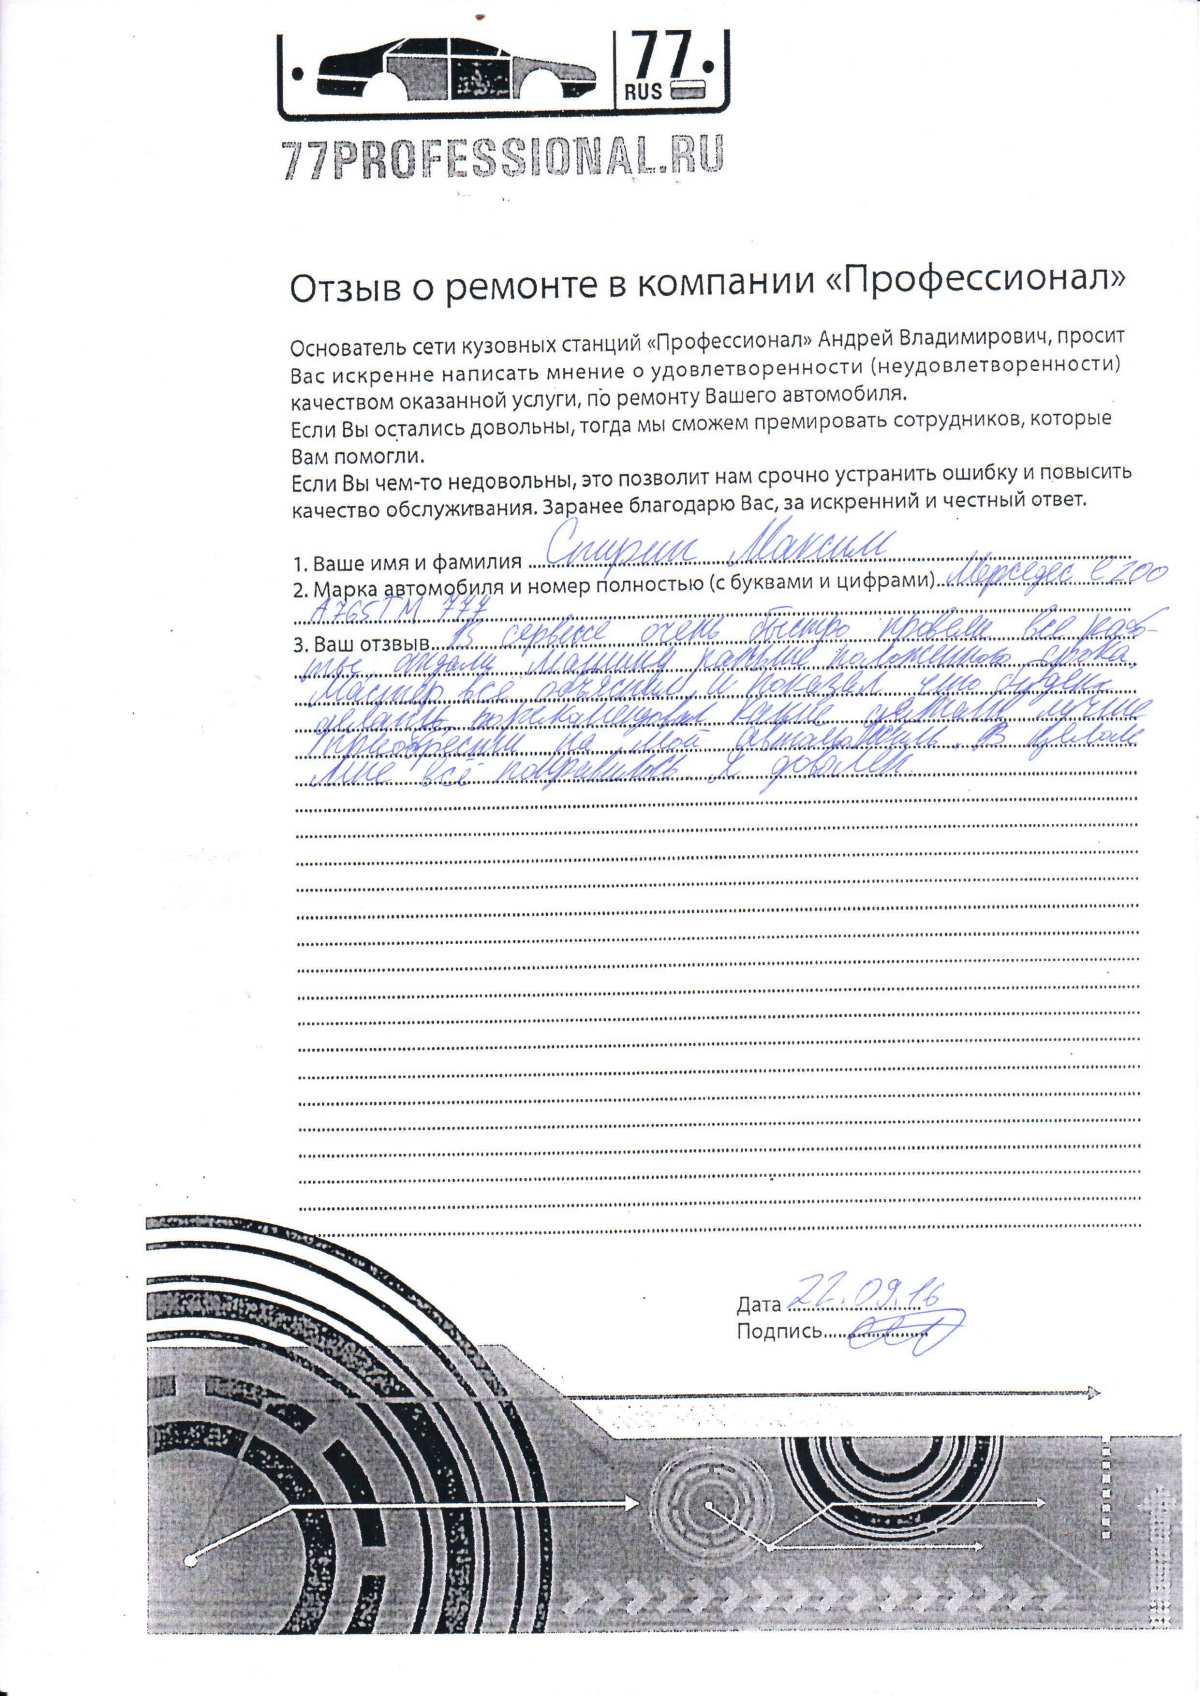 77
RUS
77PROFESSIONAL.RU
Отзыв о ремонте в компании «Профессионал»
Основатель сети кузовных станций «Профессионал» Андрей Владимирович, просит
Вас искренне написать мнение о удовлетворенности (неудовлетворенности)
качеством оказанной услуги, по ремонту Вашего автомобиля.
Если Вы остались довольны, тогда мы сможем премировать сотрудников, которые
Вам помогли.
Если Вы чем-то недовольны, это позволит нам срочно устранить ошибку и повысить
качество обслуживания. Заранее благодарю Вас, за искренний и честный ответ.
1. Ваше имя и фамилия Спирин Максим
2. Марка автомобиля и номер полностью (с буквами и цифрами) Мерседес С200
А765ТМ 777
3. Ваш отзыв В сервисе очень быстро провели все рабо-
ты, отдали машину раньше положенного срока.
Мастер все объяснил и показал что будет
делать, порекомендовал какие детали лучше
приобрести на мой автомобиль. В целом
мне всё понравилось. Я доволен.
Дата 22.09.16
Подпись